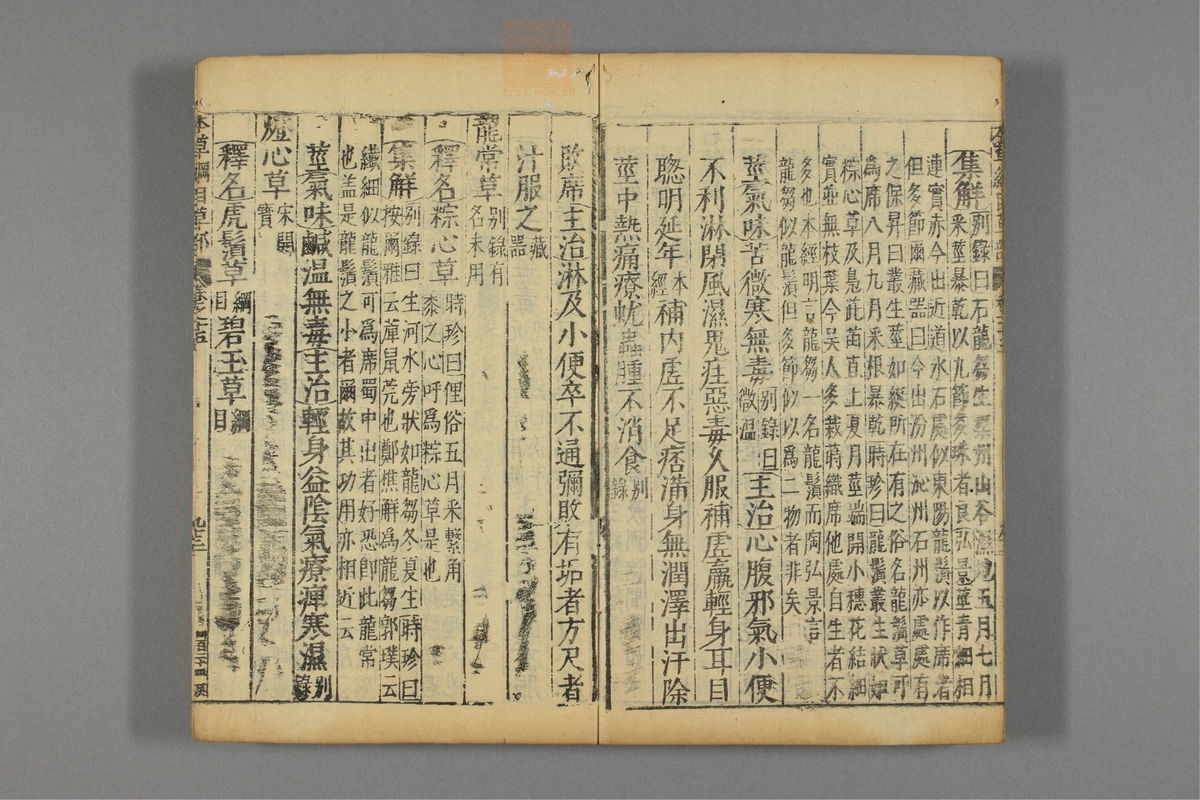 集解别錄曰石龍芻生梁州山谷濕地五月七月
采莖暴乾以九節多味者良弘景曰莖青細相
連實赤今出近道水石處似東陽龍鬚以作席者
但多節爾藏器曰今出汾州沁州石州亦處處有
之保昇曰叢生莖如綖所在有之俗名龍鬚草可
為席八月九月采根暴乾時珍曰龍鬚叢生狀如
粽心草及鳬茈苗直上夏月莖端開小穗花結細
實並無枝葉今吳人多栽蒔織席他處自生者不
多也本經明言龍芻一名龍鬚而陶弘景言
龍芻似龍鬚但多節似以為二物者非矣
莖氣味苦微寒無毒别錄曰微温主治心腹邪氣小便
不利淋閉風濕鬼疰惡毒久服補虛羸輕身耳目
聰明延年本經補内虛不足痞滿身無潤澤出汗除
莖中熱痛療蚘蟲腫不消食别錄
敗席主治淋及小便卒不通彌敗有垢者方尺煮
汁服之藏器
龍常草别錄有名未用
釋名粽心草時珍曰俚俗五月采繫角
黍之心呼為粽心草是也
集解别錄曰生河水旁狀如龍芻冬夏生時珍曰
按爾雅云䔞鼠莞也鄭樵解為龍芻郭璞云
纖細似龍鬚可為席蜀中出者好恐即此龍常
也盖是龍鬚之小者爾故其功用亦相近云
莖氣味鹹温無毒主治輕身益陰氣療痺寒濕别錄
燈心草宋開寶
釋名虎鬚草綱目碧玉草綱目
本草綱目草部